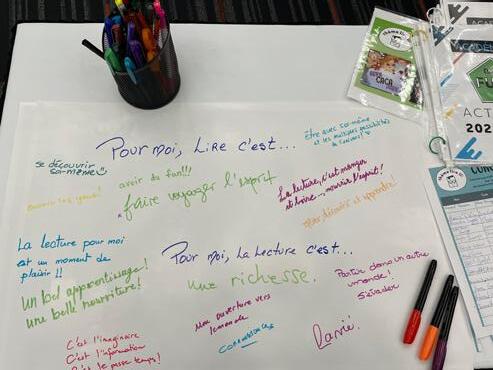 Pour moi, Lire c'est...
être avec soi-même
et les multiples possibilités
de l'univers!
se découvrir
soi-même
avoir du fun!!!
faire voyager l'esprit
La lecture, c'est manger
et boire... nourrir l'esprit!
se détendre et apprendre!
La lecture pour moi
est un moment de
plaisir!!
Pour moi, La Lecture c'est...
une richesse.
Un bel apprentissage!
une belle nourriture!
Partir dans un autre
monde!
S'évader
Une ouverture vers
le monde
connaissance
La vie!
C'est l'imaginaire
C'est l'information
C'est le passe temps!
CACA
ACADÉ
ACTI
202